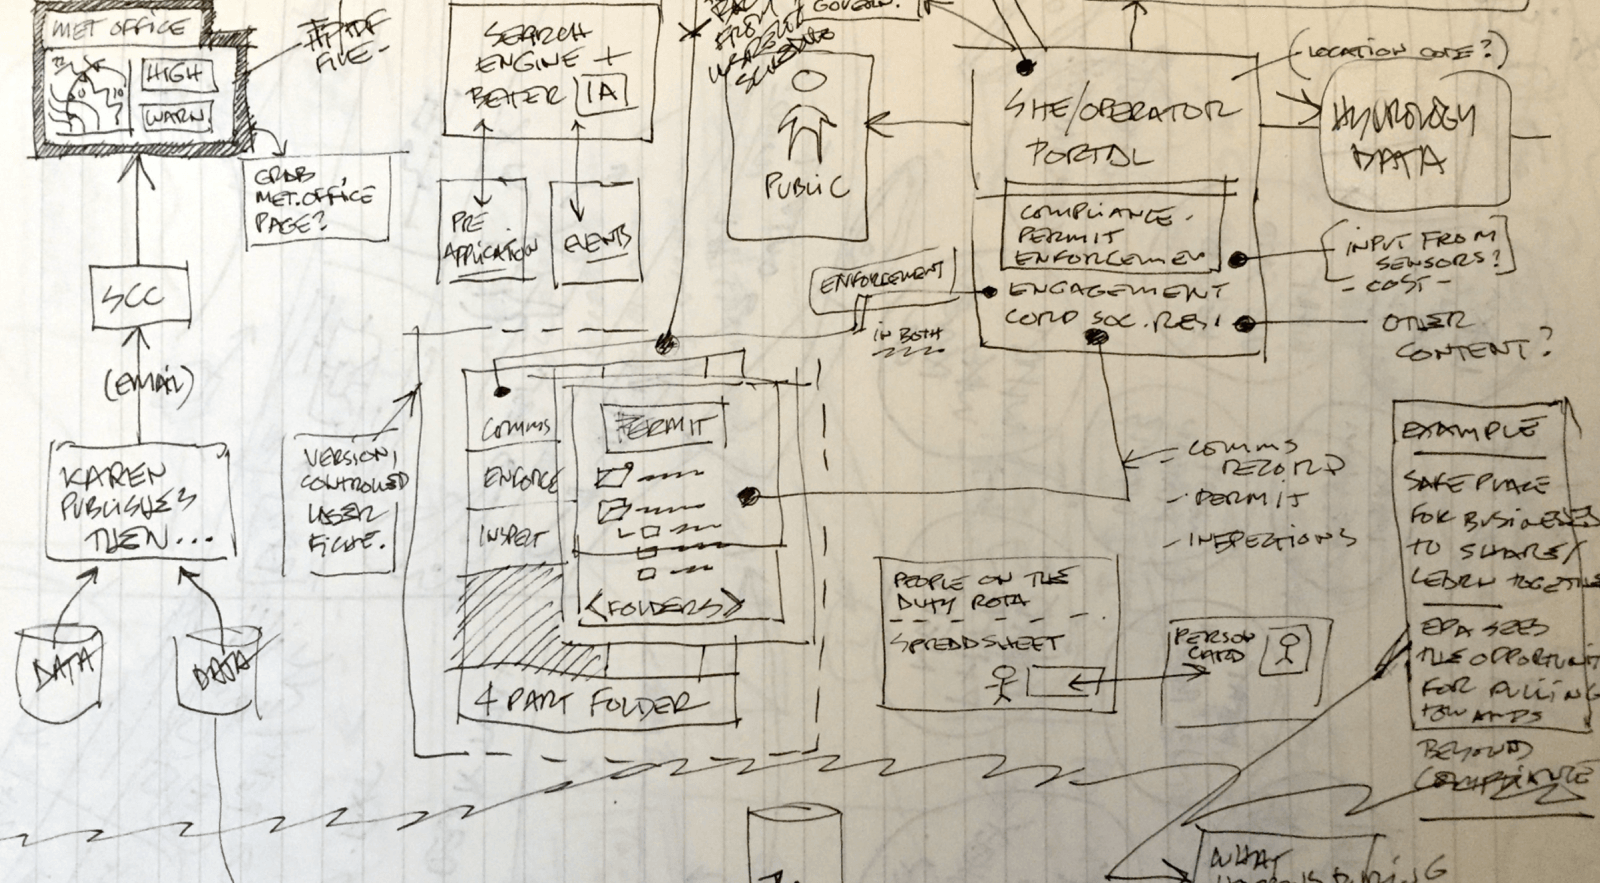 MET OFFICE
HIGH
WARN
PDF
FILE-
GRAB
MET.OFFICE
PAGE?
SCC
(EMAIL)
KAREN
PUBLISHES
THEN...
DATA
DATA
SEARCH
ENGINE +
BETTER IA
PRE
APPLICATION
EVENTS
FROM
GOVERN.
PUBLIC
SITE/OPERATOR
PORTAL
COMPLIANCE.
PERMIT
ENFORCEMEN
ENGAGEMENT
CORP SOC. RES.
(LOCATION CODE?)
HYDROLOGY
DATA
INPUT FROM
SENSORS?
- COST -
OTHER
CONTENT?
ENFORCEMENT
IN BOTH
VERSION,
CONTROLLED
LASER
FICHE.
COMMS
ENFORCE
INSPECT
PERMIT
<FOLDERS>
4 PART FOLDER
- COMMS
RECORD
- PERMIT
- INSPECTIONS
PEOPLE ON THE
DUTY ROTA
SPREADSHEET
PERSON
CARD
EXAMPLE
SAFE PLACE
FOR BUSINESSES
TO SHARE/
LEARN TOGETHE
EPA SEES
THE OPPORTUNIT
FOR PULLING
TOWARDS
BEYOND
COMPLIANCE
WHAT